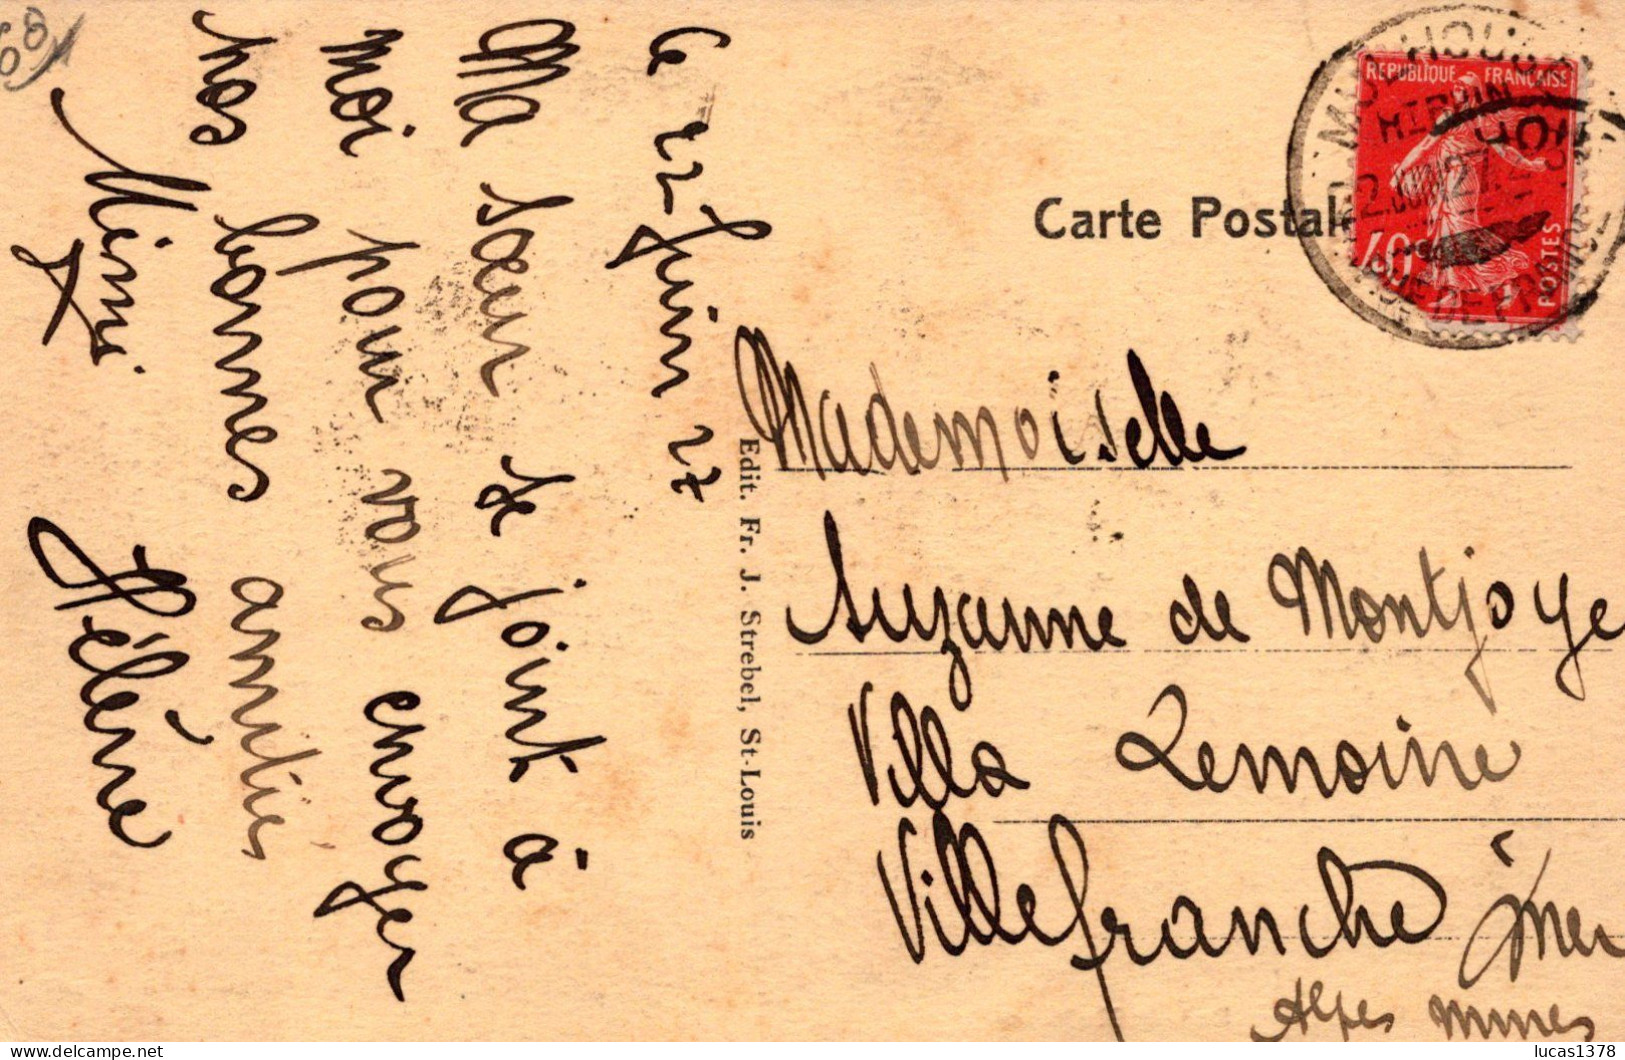 68
Ce 22 Juin 27
Ma sœur se joint à
moi pour vous envoyer
nos bonnes amitiés
Mimi Hélène
Edit. Fr. J. Strebel, St-Louis
Carte Postale
REPUBLIQUE FRANÇAISE
40
POSTES
MULHOUSE
HT RHIN
JUIN 27
Mademoiselle
Suzanne de Montjoye
Villa Lemoine
Villefranche s/mer
Alpes mmes
delcampe.net
lucas1378